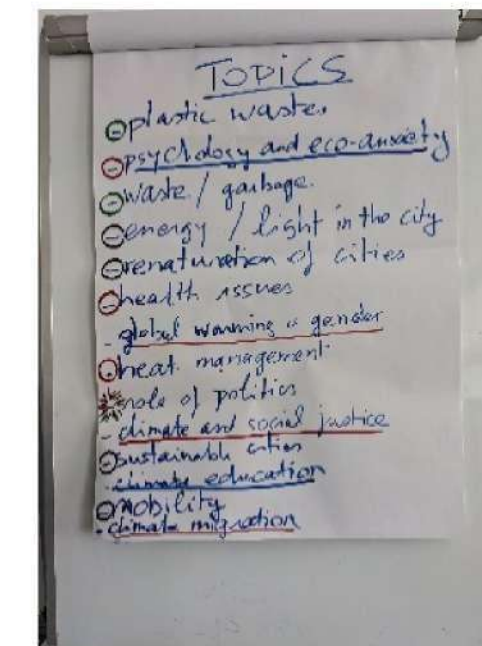 TOPICS
- plastic waste.
- psychology and eco-anxiety
- waste / garbage.
- energy / light in the city
- renaturation of cities
- health issues
- global warming & gender
- heat management
- role of politics
- climate and social justice
- sustainable cities
- climate education
- mobility
- climate migration